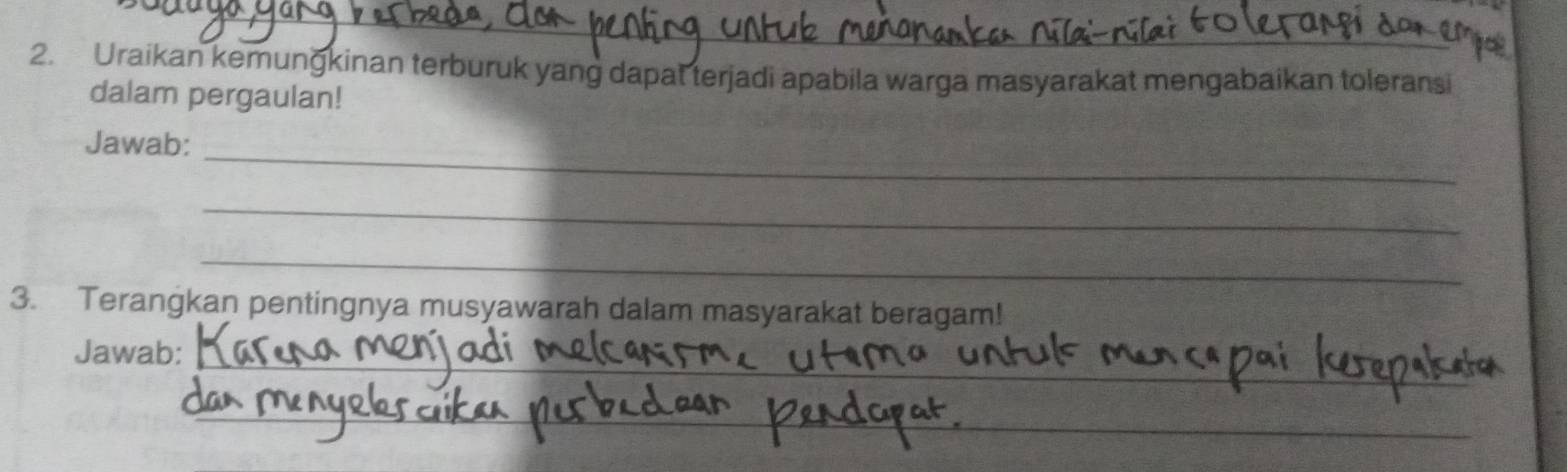 budaya, yang berbeda, dan penting untuk menanamkan nilai-nilai toleransi dan
2. Uraikan kemungkinan terburuk yang dapat terjadi apabila warga masyarakat mengabaikan toleransi
dalam pergaulan!
Jawab:
3. Terangkan pentingnya musyawarah dalam masyarakat beragam!
Jawab: Karena menjadi mekanisme utama untuk mencapai kesepakatan
dan menyelesaikan perbedaan pendapat.